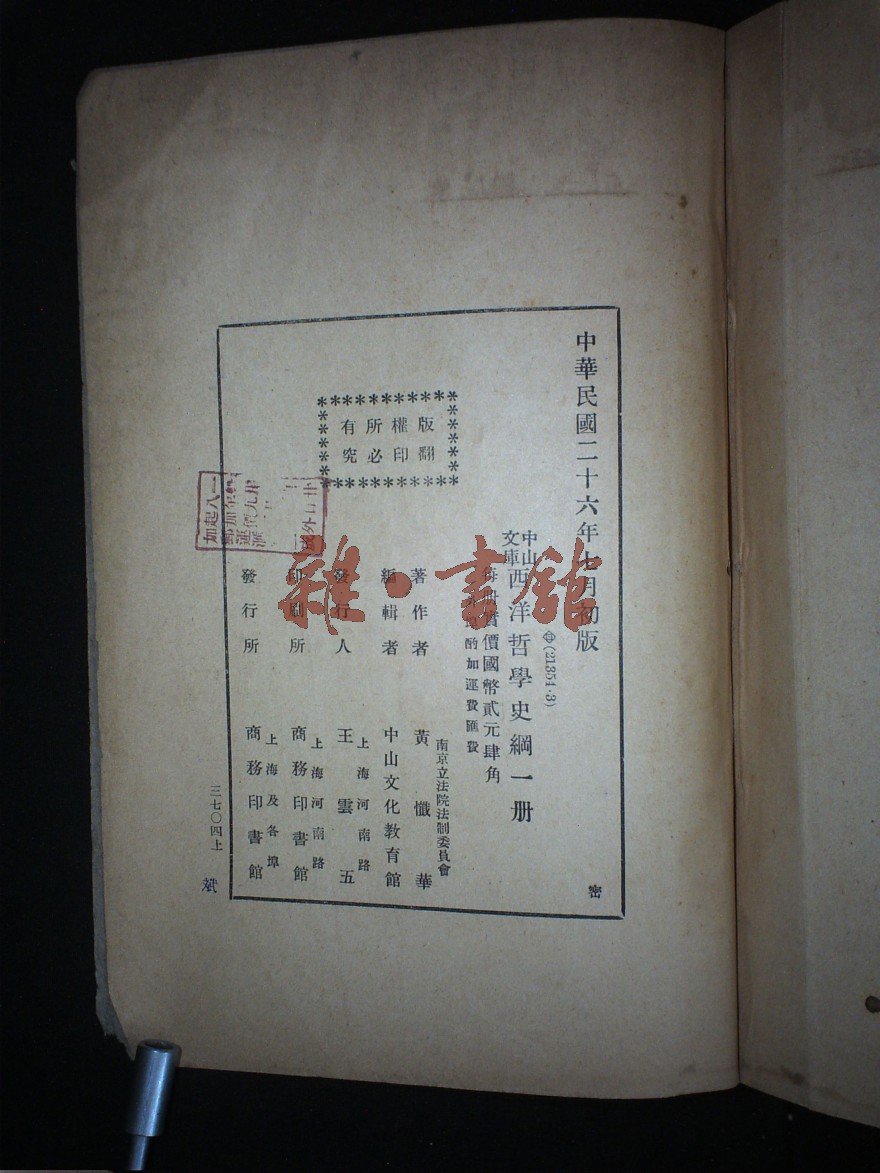 中華民國二十六年七月初版
密
⊕(21354·3)
中山
文庫
西洋哲學史綱一册
每册實價國幣貳元肆角
酌加運費匯費
南京立法院法制委員會
著作者 黃懺華
編輯者 中山文化教育館
上海河南路
發行人 王雲五
上海河南路
印刷所 商務印書館
上海及各埠
發行所 商務印書館
版權所有
翻印必究
三七〇四上
斌
雜·書館